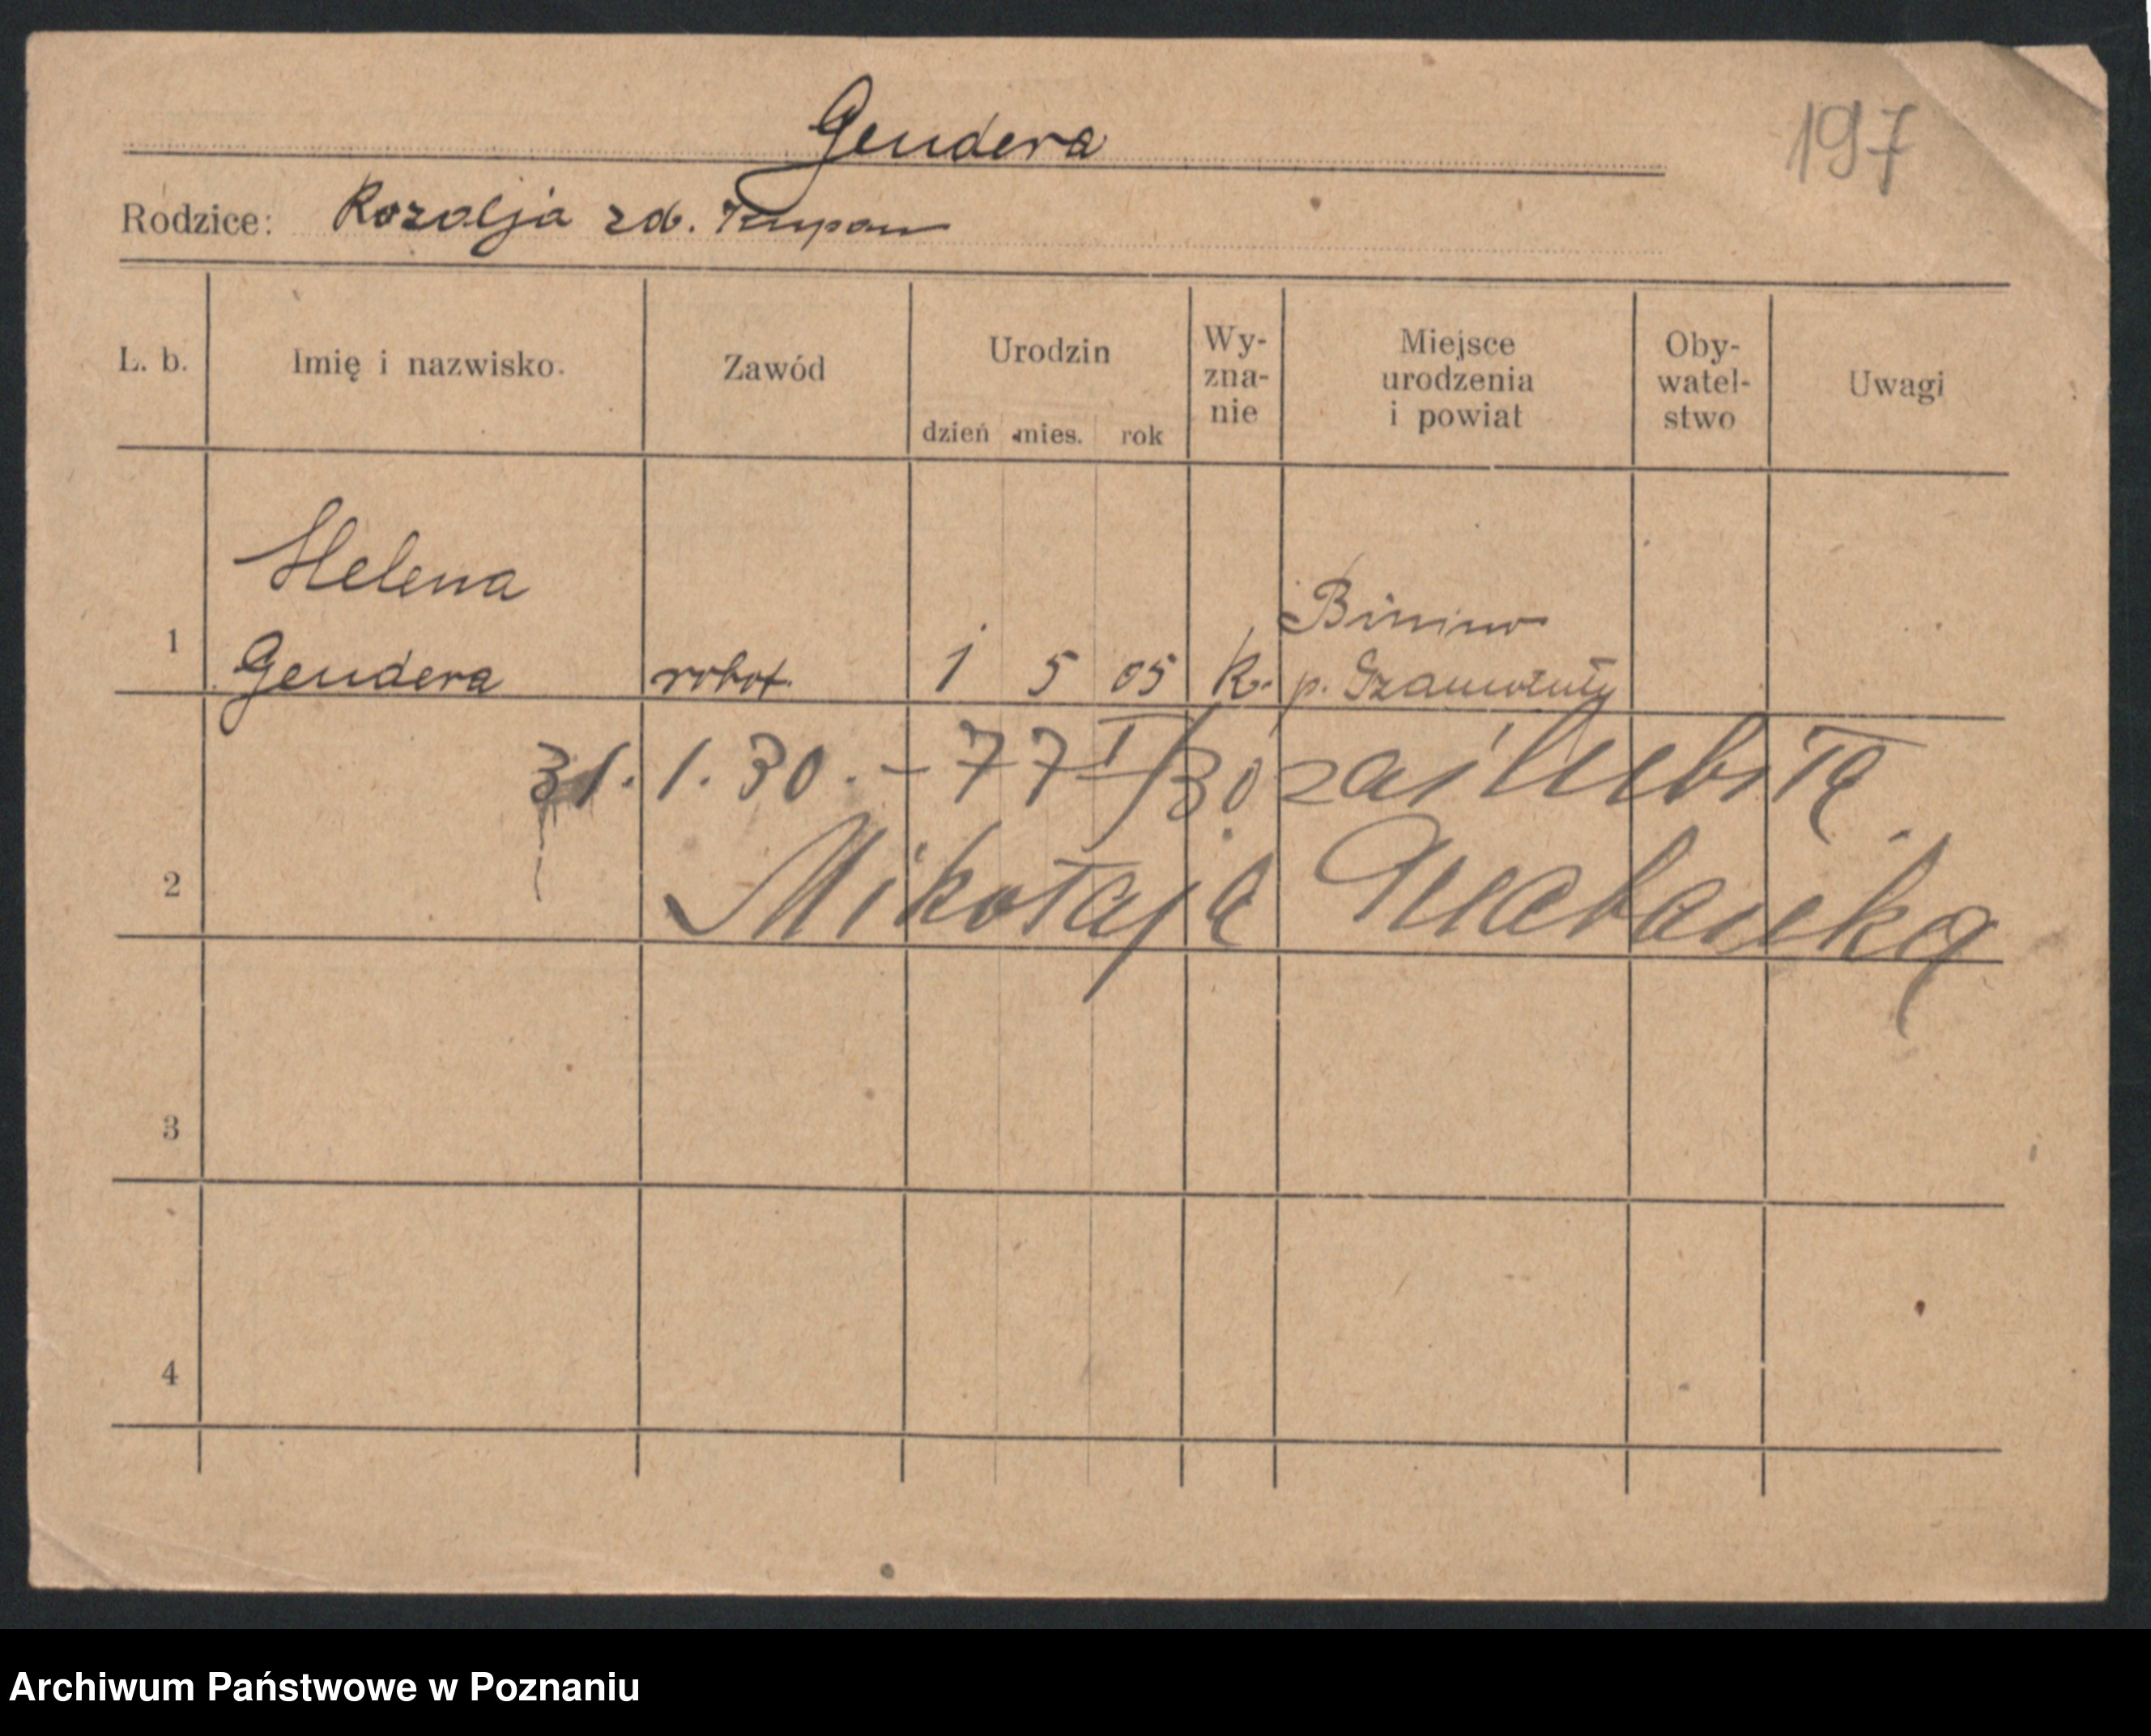 Gendera
197
Rodzice: Rozalja zd.
L. b. Imię i nazwisko. Zawód Urodzin dzień mies. rok Wy-zna-nie Miejsce urodzenia i powiat Oby-watel-stwo Uwagi
Helena Binino
1 Gendera robot. 1 5 05 k. p. Szamotuły
31.1.30. – 77 I/30 zaślubiła
2 Mikołaja
3
4
Archiwum Państwowe w Poznaniu